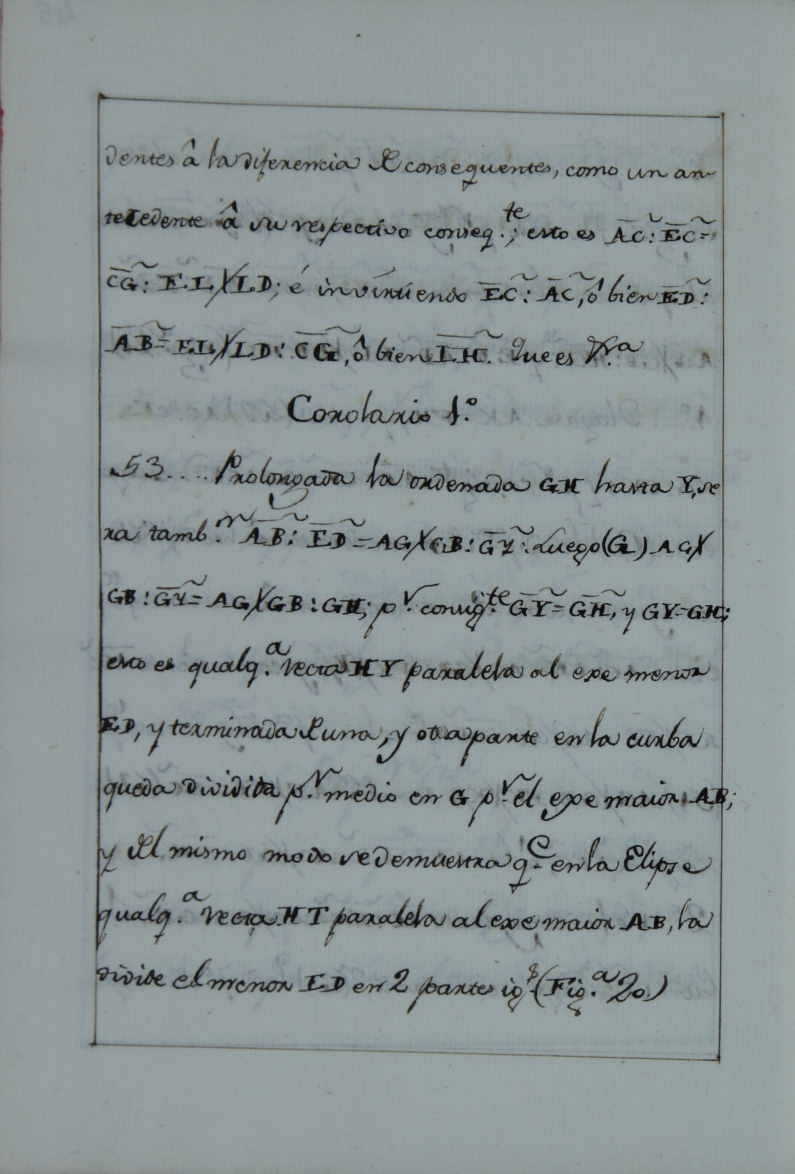 dentes â la diferencia de consequentes, como un an-
tecedente â su respectivo conseq.te; esto es AC~: EC~=
CG~: EL X LD; é invirtiendo EC~: AC~, ô bien ED~:
AB~= EL X LD: CG~, ô bien LH~. Que es
Corolario 1.º
53.... Prolongada la ordenada GH hasta Y, se
ra tamb.n AB~: ED~= AG X GB: GY~: Luego (G) AG X
GB: GY~= AG X GB: GH; p.r consig.te GY~= GH~, y GY=GH;
esto es qualq.a recta HY paralela al exe menor
ED, y terminada de una, y otra parte en la curba
queda dividida p.r medio en G p.r el exe maior AB;
y del mismo modo se demuestra q.e en la Elipse
qualq.a recta HT paralela al exe maior AB, la
divide el menor ED en 2 partes ig.s (Fig.a 20)